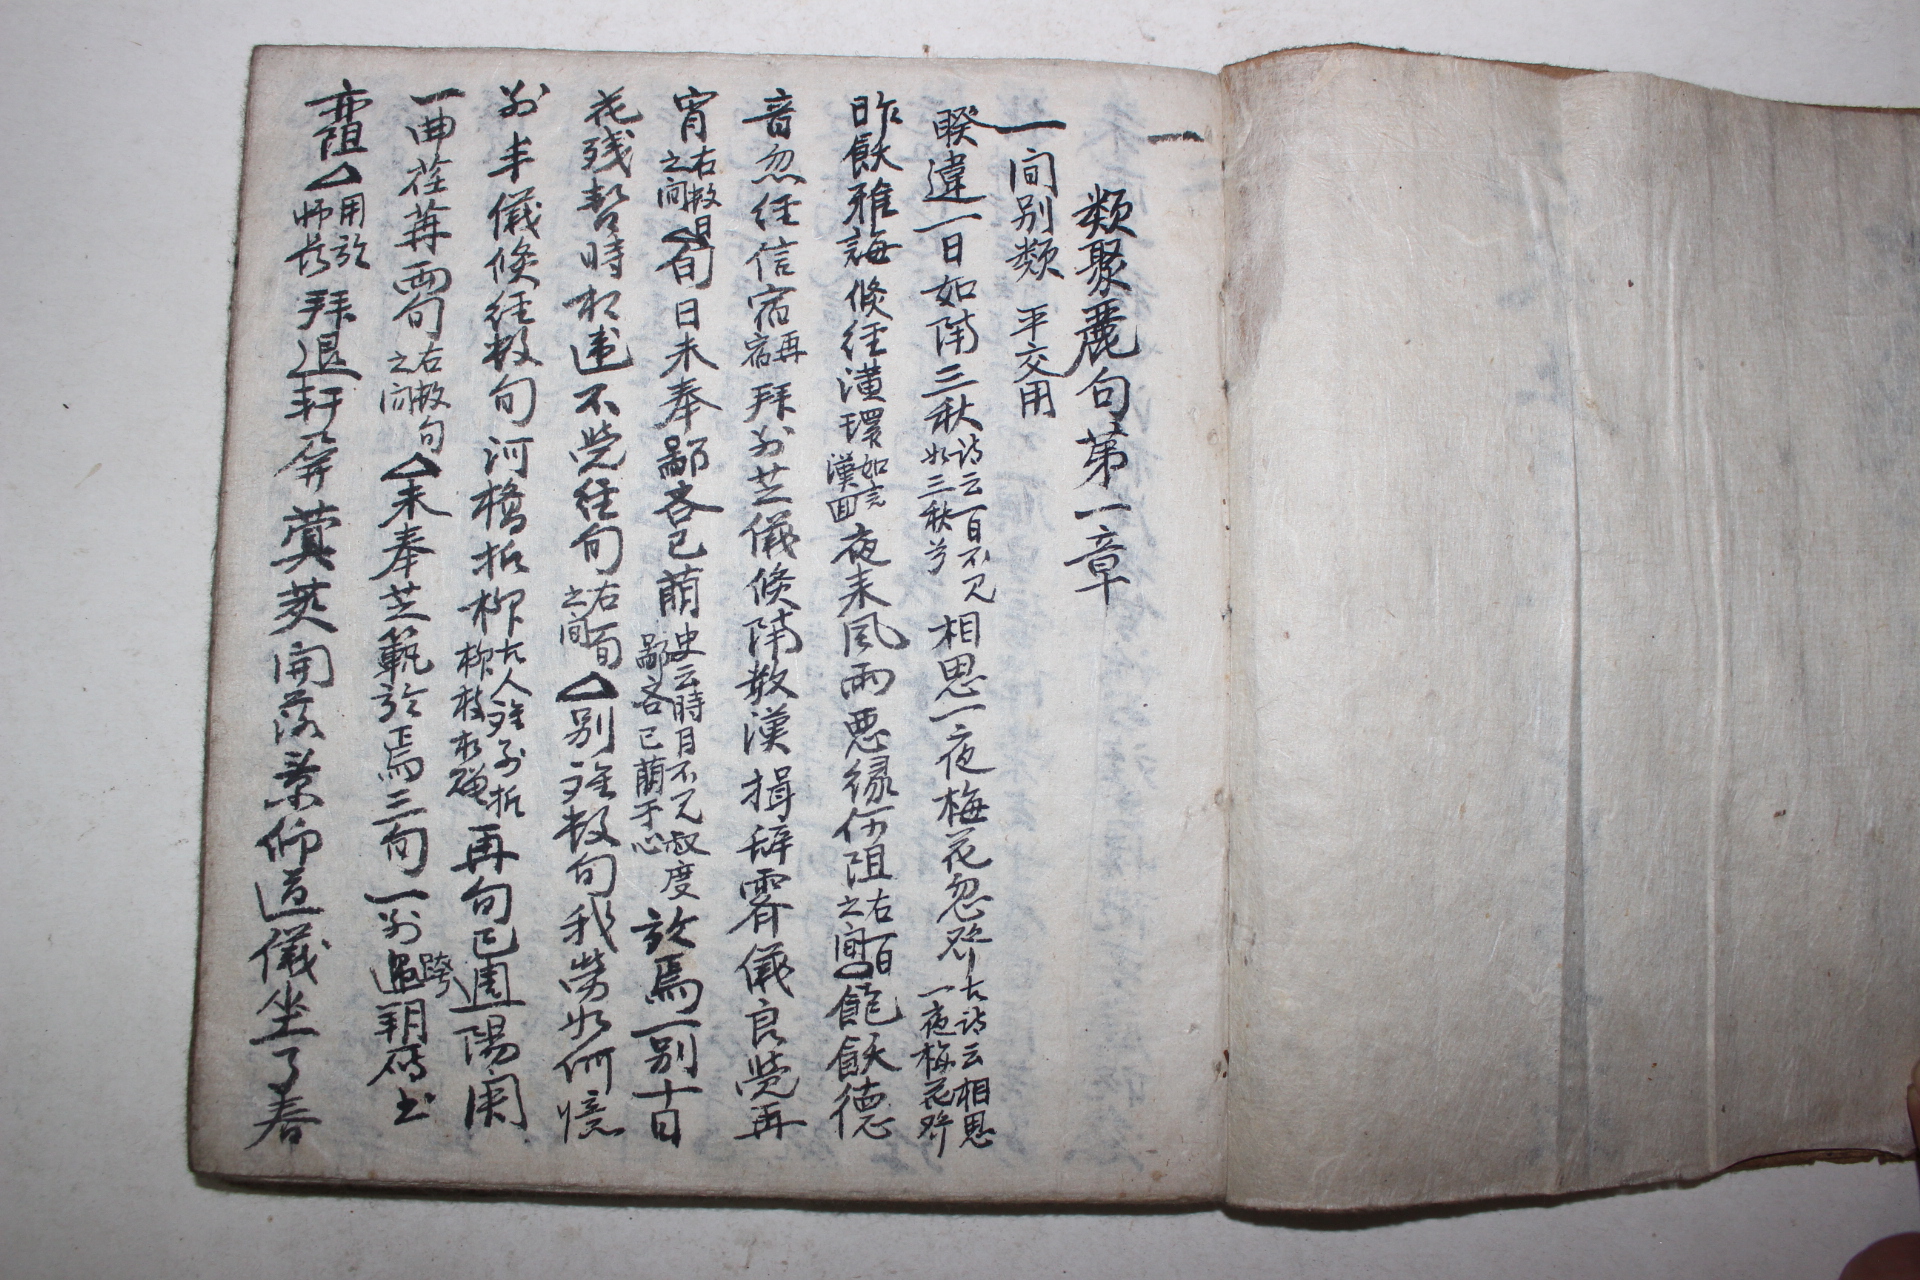 一
類聚麗句第一章
一 間別類 平交用
睽違一日如隔三秋 詩云一日不見如三秋兮 相思一夜梅花忽發 古詩云相思一夜梅花發
昨飫雅誨倏經潢環 夜来風雨悪縁何阻 右一日之間 △飽飫德
音忽經信宿 再宿 拜別芝儀倏隔数漢揖辞霽儀良覺再
宵 右数日之間 △旬日未奉鄙吝已萌 史云時月不見叔度鄙吝已萌于心 於焉一別十日
花残暫時相違不覺経旬 右一旬之間 △別難数旬我勞如何憶
別丰儀倏経数旬河橋折柳 古人難別折柳枝相 再旬已週陽闋
一曲荏苒両旬 右数旬之間 △未奉芝範於焉三旬一別 跨朔
阻 △用於師長 拜退軒屏蓂莢開落葉仰道儀坐了春